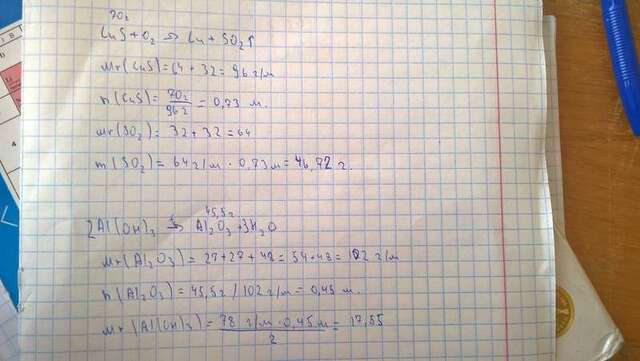 70г
CuS + O₂ => Cu + SO₂↑
Mr(CuS) = 64 + 32 = 96 г/м
n(CuS) = 70г / 96г = 0,73 м.
Mr(SO₂) = 32 + 32 = 64
m(SO₂) = 64 г/м · 0,73 м = 46,72 г.
45,5г
2Al(OH)₃ => Al₂O₃ + 3H₂O
Mr(Al₂O₃) = 27+27+48 = 54+48 = 102 г/м
n(Al₂O₃) = 45,5г / 102 г/м = 0,45 м.
Mr(Al(OH)₃) = 78 г/м · 0,45 м / 2 = 17,55